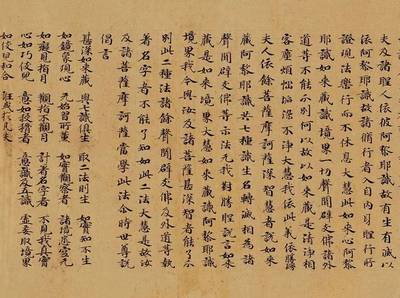 夫及諸聖人依彼阿梨耶識故有生有滅以
依阿梨耶識故諸修行者入自內身聖行所
證現法樂行而不休息大慧此如來心阿梨
耶識如來藏諸境界一切聲聞辟支佛諸外
道等不能分別何以故以如來藏是清淨相
客塵煩惱垢染不淨大慧我依此義依勝鬘
夫人依餘菩薩摩訶薩深智慧者說如來
藏阿梨耶識共七種識生名轉滅相為諸
聲聞辟支佛等示法无我對勝鬘說言如來
藏是如來境界大慧如來藏識阿梨耶識
境界我今與汝及諸菩薩甚深智者能了分
別此二種法諸餘聲聞辟支佛及外道等執
著名字者不能了知如此二法大慧是故汝
及諸菩薩摩訶薩當學此法尒時世尊說
偈言
甚深如來藏 與七識俱生 取二法則生 如實知不生
如鏡像現心 无始習所薰 如實觀察者 諸境悉空无
如癡見指月 觀指不觀月 計著名字者 不見我真實
心如巧伎兒 意如狡猾者 意識及五識 虛妄取境界
如伎兒和合 誑惑於凡夫